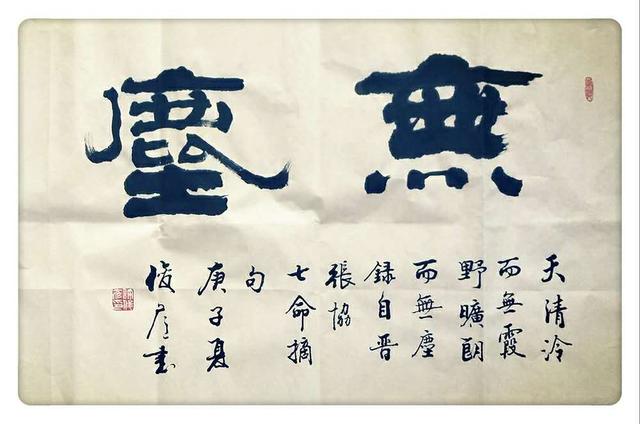 無塵
天清泠
而無霞
野曠朗
而無塵
録自晋
張協
七命摘
句
庚子夏
俊彦書